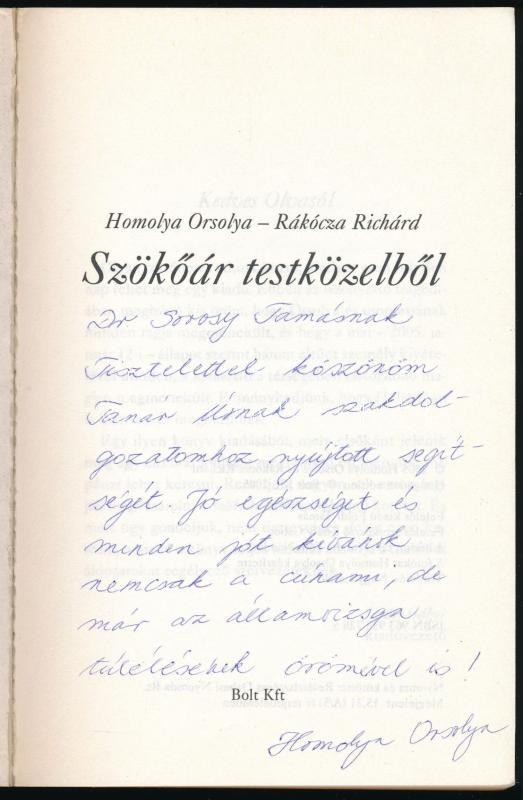 Homolya Orsolya – Rákócza Richárd
Szökőár testközelből
Dr Sorosy Tamásnak
Tisztelettel köszönöm
Tanár Úrnak szakdol-
gozatomhoz nyújtott segít-
ségét. Jó egészséget és
minden jót kívánok
nemcsak a cunami, de
már az államvizsga
túlélésének örömével is!
Bolt Kft
Homolya Orsolya